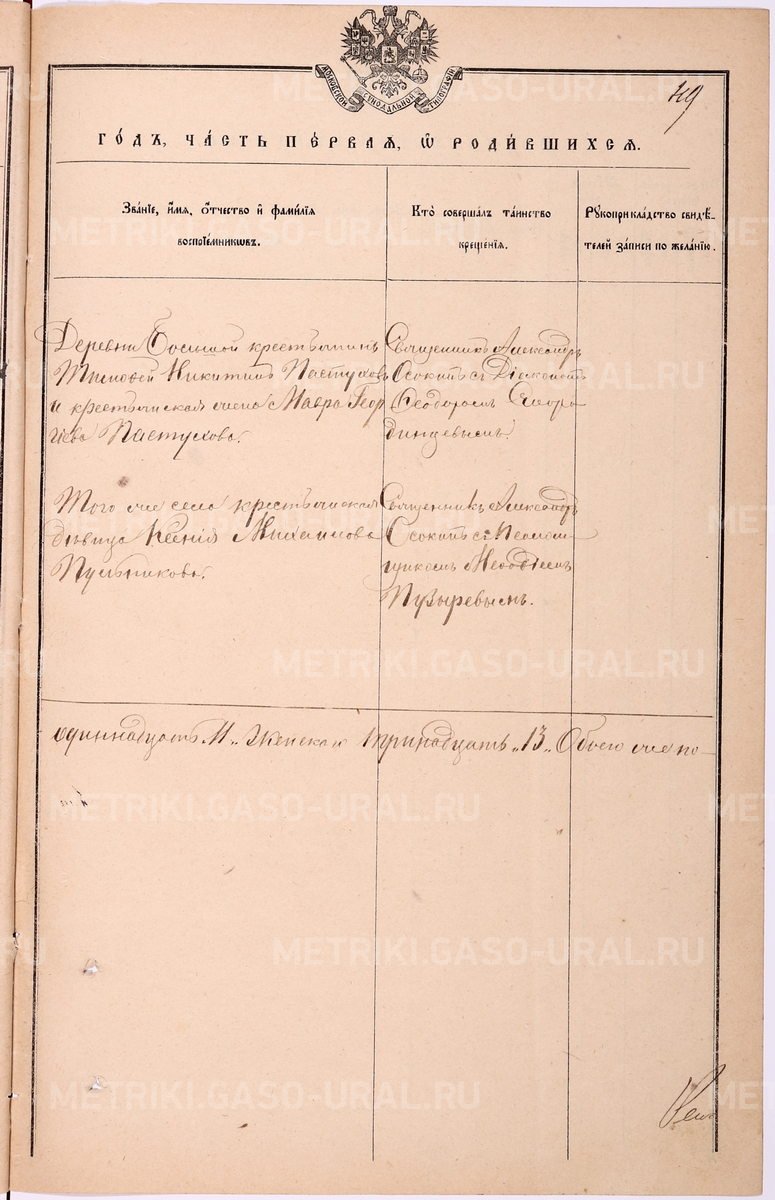 МОСКОВСКОЙ СѴНОДАЛЬНОЙ ТИПОГРАФІИ
ГО́ДЪ, ЧА́СТЬ ПЕ́РВАѦ, Ѡ҆ РОДИ́ВШИХСѦ.
Зва́нїе, и҆́мѧ, ѻ҆́тчество и҆ фами́лїѧ
воспрїе́мникѡвъ.
Кто̀ соверша́лъ та́инство
креще́нїѧ.
Рꙋкоприкла́дство свидѣ́-
телей за́писи по жела́нїю.
Деревни крестьянинъ
Тимофей Никитинъ Пастуховъ
и крестьянская жена Мавра Геор
гіева Пастухова.
Священникъ Александръ
Осокинъ съ Діакономъ
Ѳеодоромъ Сморо
динцевымъ.
Того же села крестьянская
дѣвица Ксенія Михаилова
Пульникова.
Священникъ Александръ
Осокинъ съ Псалом
щикомъ Меѳодіемъ
Пузыревымъ.
одиннадцать 11 „ женска тринадцать „13„ Обоего же по-
METRIKI.GASO-URAL.RU